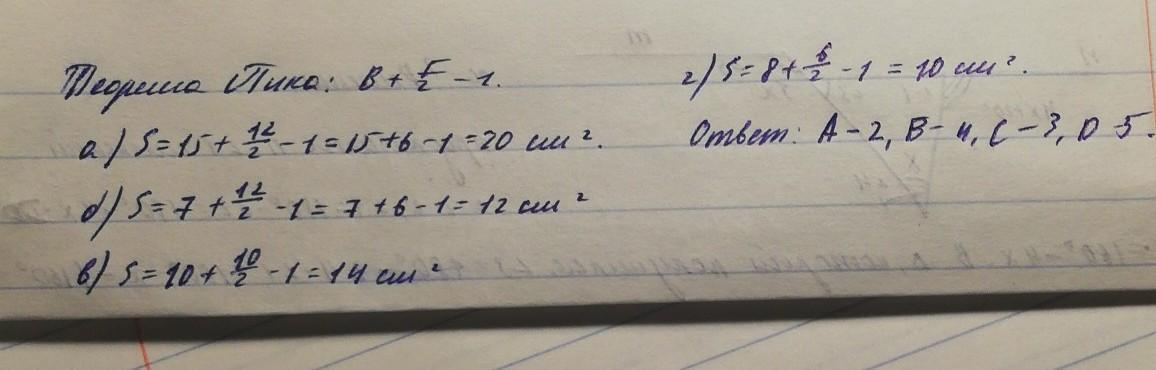 Теорема Пика: В + Г/2 - 1.
а) S = 15 + 12/2 - 1 = 15 + 6 - 1 = 20 см².
б) S = 7 + 12/2 - 1 = 7 + 6 - 1 = 12 см²
в) S = 10 + 10/2 - 1 = 14 см²
г) S = 8 + 6/2 - 1 = 10 см².
Ответ: А - 2, В - 4, С - 3, D - 5.